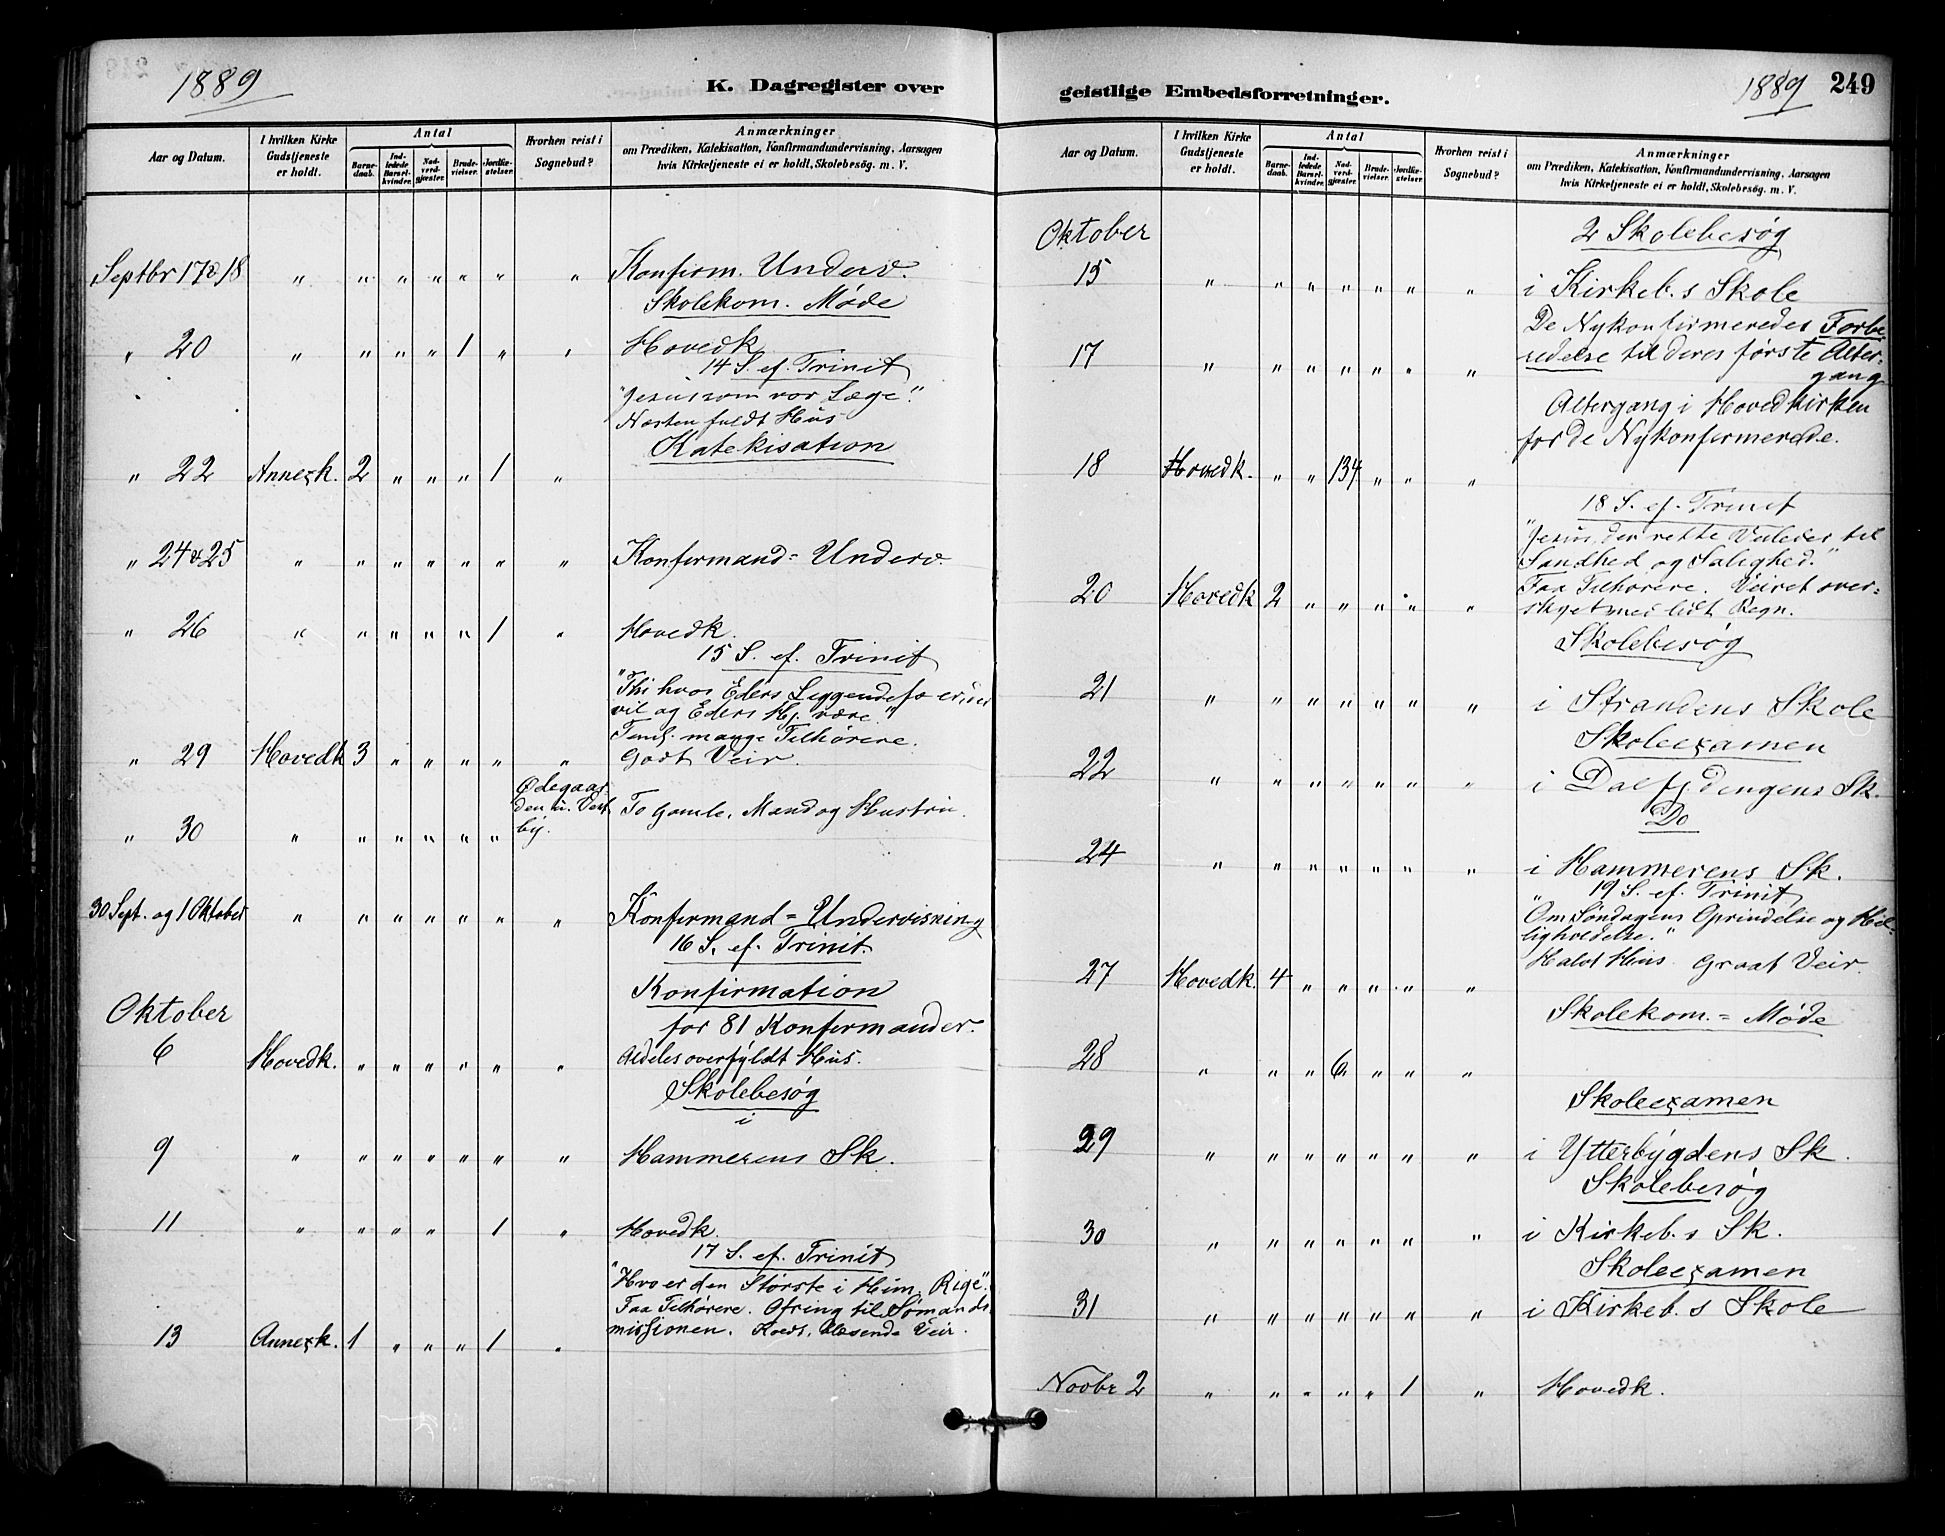 1889
K. Dagregister over
Aar og Datum.
I hvilken Kirke Gudstjeneste er holdt.
Antal
Barnedaab.
Indledede Barselkvinder.
Nadverdgjæster.
Brudevielser.
Jordfæstelser.
Hvorhen reist i Sognebud?
Anmærkninger
om Prædiken, Katekisation, Konfirmandundervisning, Aarsagen
hvis Kirketjeneste ei er holdt, Skolebesøg. m. V.
Septbr 17 & 18 " " " " " " " Konfirm. Underv.
Skolekom. Møde
" 20 " " " " 1 " " Hovedk.
14 S. ef. Trinit
"Jesus som vor Læge".
Næsten fuldt Hus
Katekisation
" 22 Annexk. 2 " " " 1 "
" 24 & 25 " " " " " " " Konfirmand=Underv.
" 26 " " " " " 1 " Hovedk.
15 S. ef. Trinit
"Thi hvor Eders Liggendefæ er, der
vil og Eders Hj. være."
Teml. mange Tilhørere.
" 29 Hovedk 3 " " " " " Godt Veir.
Ødegaar-
den u. Vest
by.
" 30 " " " " " " To gamle, Mand og Hustru.
30 Sept. og 1 Oktober " " " " " " " Konfirmand=Undervisning
16 S. ef. Trinit.
Konfirmation
for 81 Konfirmander.
Oktober
6 Hovedk. " " " " " " Aldeles overfyldt Hus.
Skolebesøg
i
9 " " " " " " " Hammerens Sk.
11 " " " " 1 " Hovedk.
17 S. ef. Trinit
"Hvo er den Største i Him. Rige".
Faa Tilhørere. Ofring til Sømands
missionen. Koldt, blæsende Veir.
13 Annexk. 1 " " " 1 "
1889
249
geistlige Embedsforretninger.
Aar og Datum.
I hvilken Kirke Gudstjeneste er holdt.
Antal
Barnedaab.
Indledede Barselkvinder.
Nadverdgjæster.
Brudevielser.
Jordfæstelser.
Hvorhen reist i Sognebud?
Anmærkninger
om Prædiken, Katekisation, Konfirmandundervisning, Aarsagen
hvis Kirketjeneste ei er holdt, Skolebesøg. m. V.
Oktober
2 Skolebesøg
15 " " " " " " " i Kirkeb.s Skole
De Nykonfirmeredes Forbe
17 " " " " " " " redelse til deres første Alter-
gang
Altergang i Hovedkirken
for de Nykonfirmerede.
18 Hovedk. " " 134 " " "
18 S. ef. Trinit
"Jesus, den rette Veileder til
Sandhed og Salighed."
Faa Tilhørere. Veiret over=
20 Hovedk 2 " " " " " skyet med lidt Regn.
Skolebesøg
21 " " " " " " " i Strandens Skole
Skoleexamen
22 " " " " " " " i Dalfjdingens Sk.
Do
24 " " " " " " " i Hammerens Sk.
19 S. ef. Trinit
"Om Søndagens Oprindelse og Hel-
ligholdelse."
Halvt Hus. Graat Veir.
27 Hovedk. 4 " " " " "
Skolekom.=Møde
28 " " " 6 " " "
Skoleexamen
29 " " " " " " " i Ytterbygdens Sk.
Skolebesøg
30 " " " " " " " i Kirkeb.s Sk.
Skoleexamen
31 " " " " " " " i Kirkeb.s Skole
Novbr 2 " " " " " 1 " Hovedk.